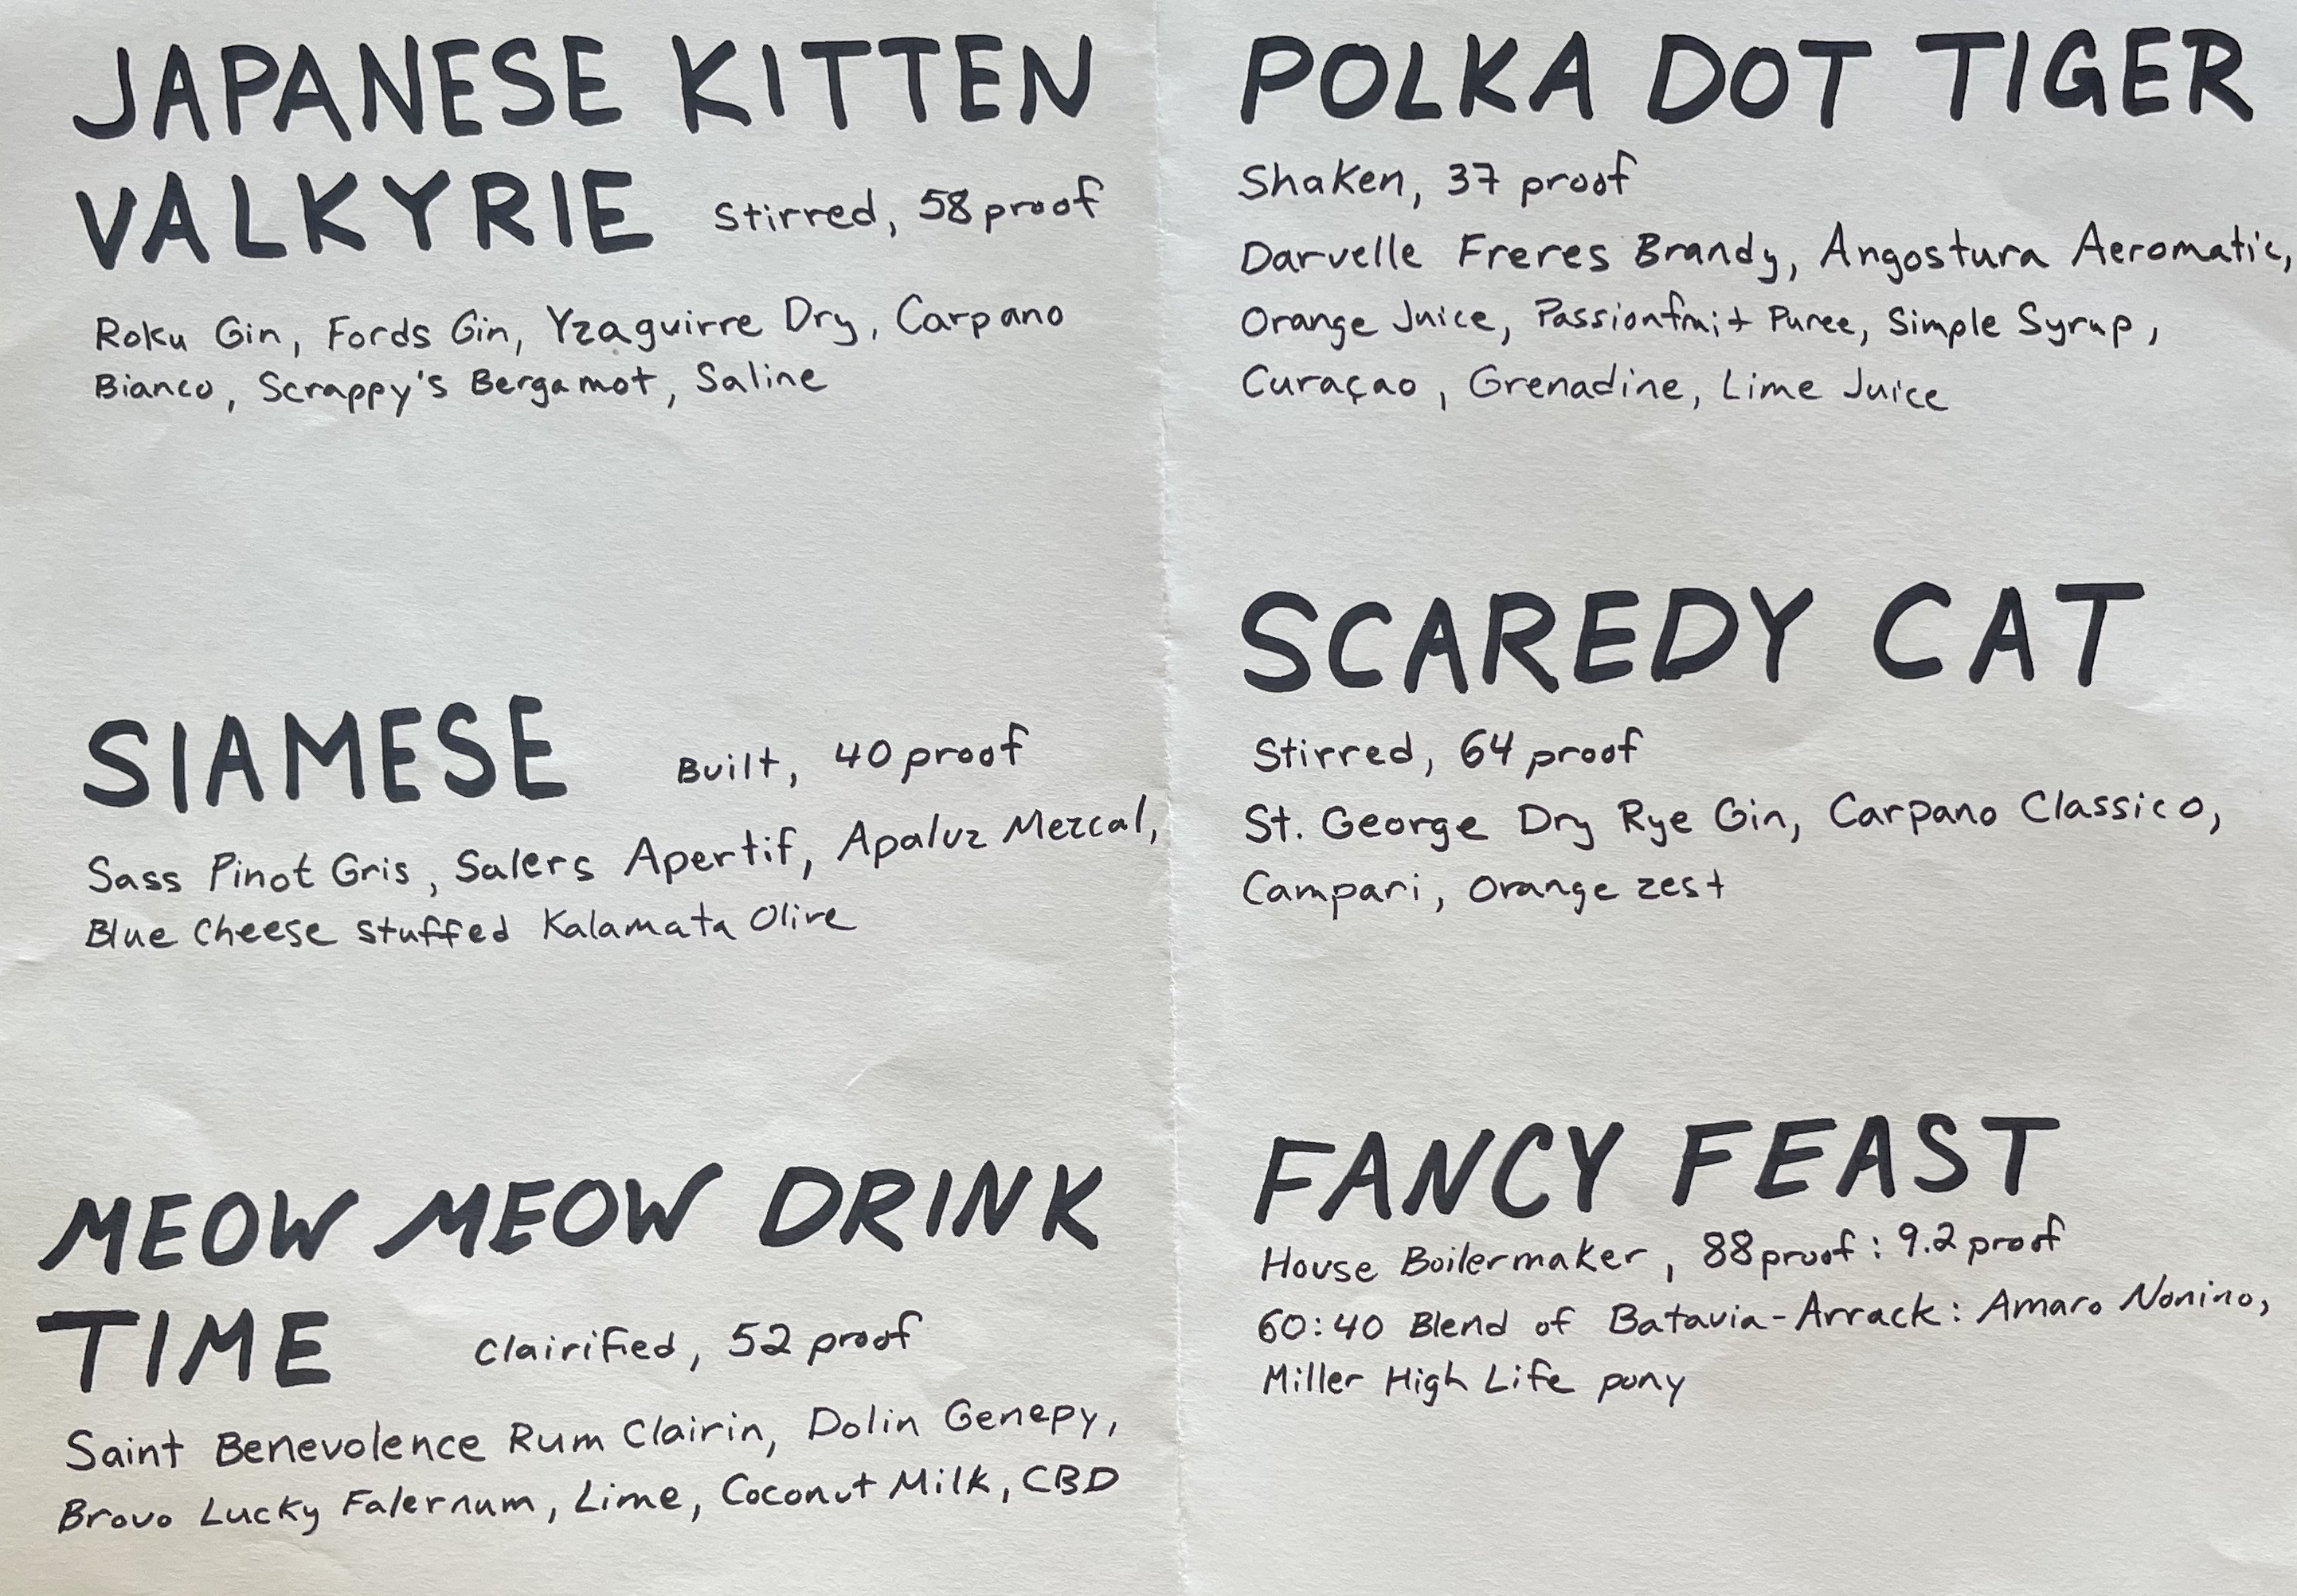 JAPANESE KITTEN
VALKYRIE Stirred, 58 proof
Roku Gin, Fords Gin, Yzaguirre Dry, Carpano
Bianco, Scrappy's Bergamot, Saline
SIAMESE Built, 40 proof
Sass Pinot Gris, Salers Apertif, Apaluz Mezcal,
Blue Cheese stuffed Kalamata Olive
MEOW MEOW DRINK
TIME Clairified, 52 proof
Saint Benevolence Rum Clairin, Dolin Genepy,
Brovo Lucky Falernum, Lime, Coconut Milk, CBD
POLKA DOT TIGER
Shaken, 37 proof
Darvelle Freres Brandy, Angostura Aeromatic,
Orange Juice, Passionfruit Puree, Simple Syrup,
Curaçao, Grenadine, Lime Juice
SCAREDY CAT
Stirred, 64 proof
St. George Dry Rye Gin, Carpano Classico,
Campari, Orange zest
FANCY FEAST
House Boilermaker, 88 proof : 9.2 proof
60:40 Blend of Batavia-Arrack: Amaro Nonino,
Miller High Life pony